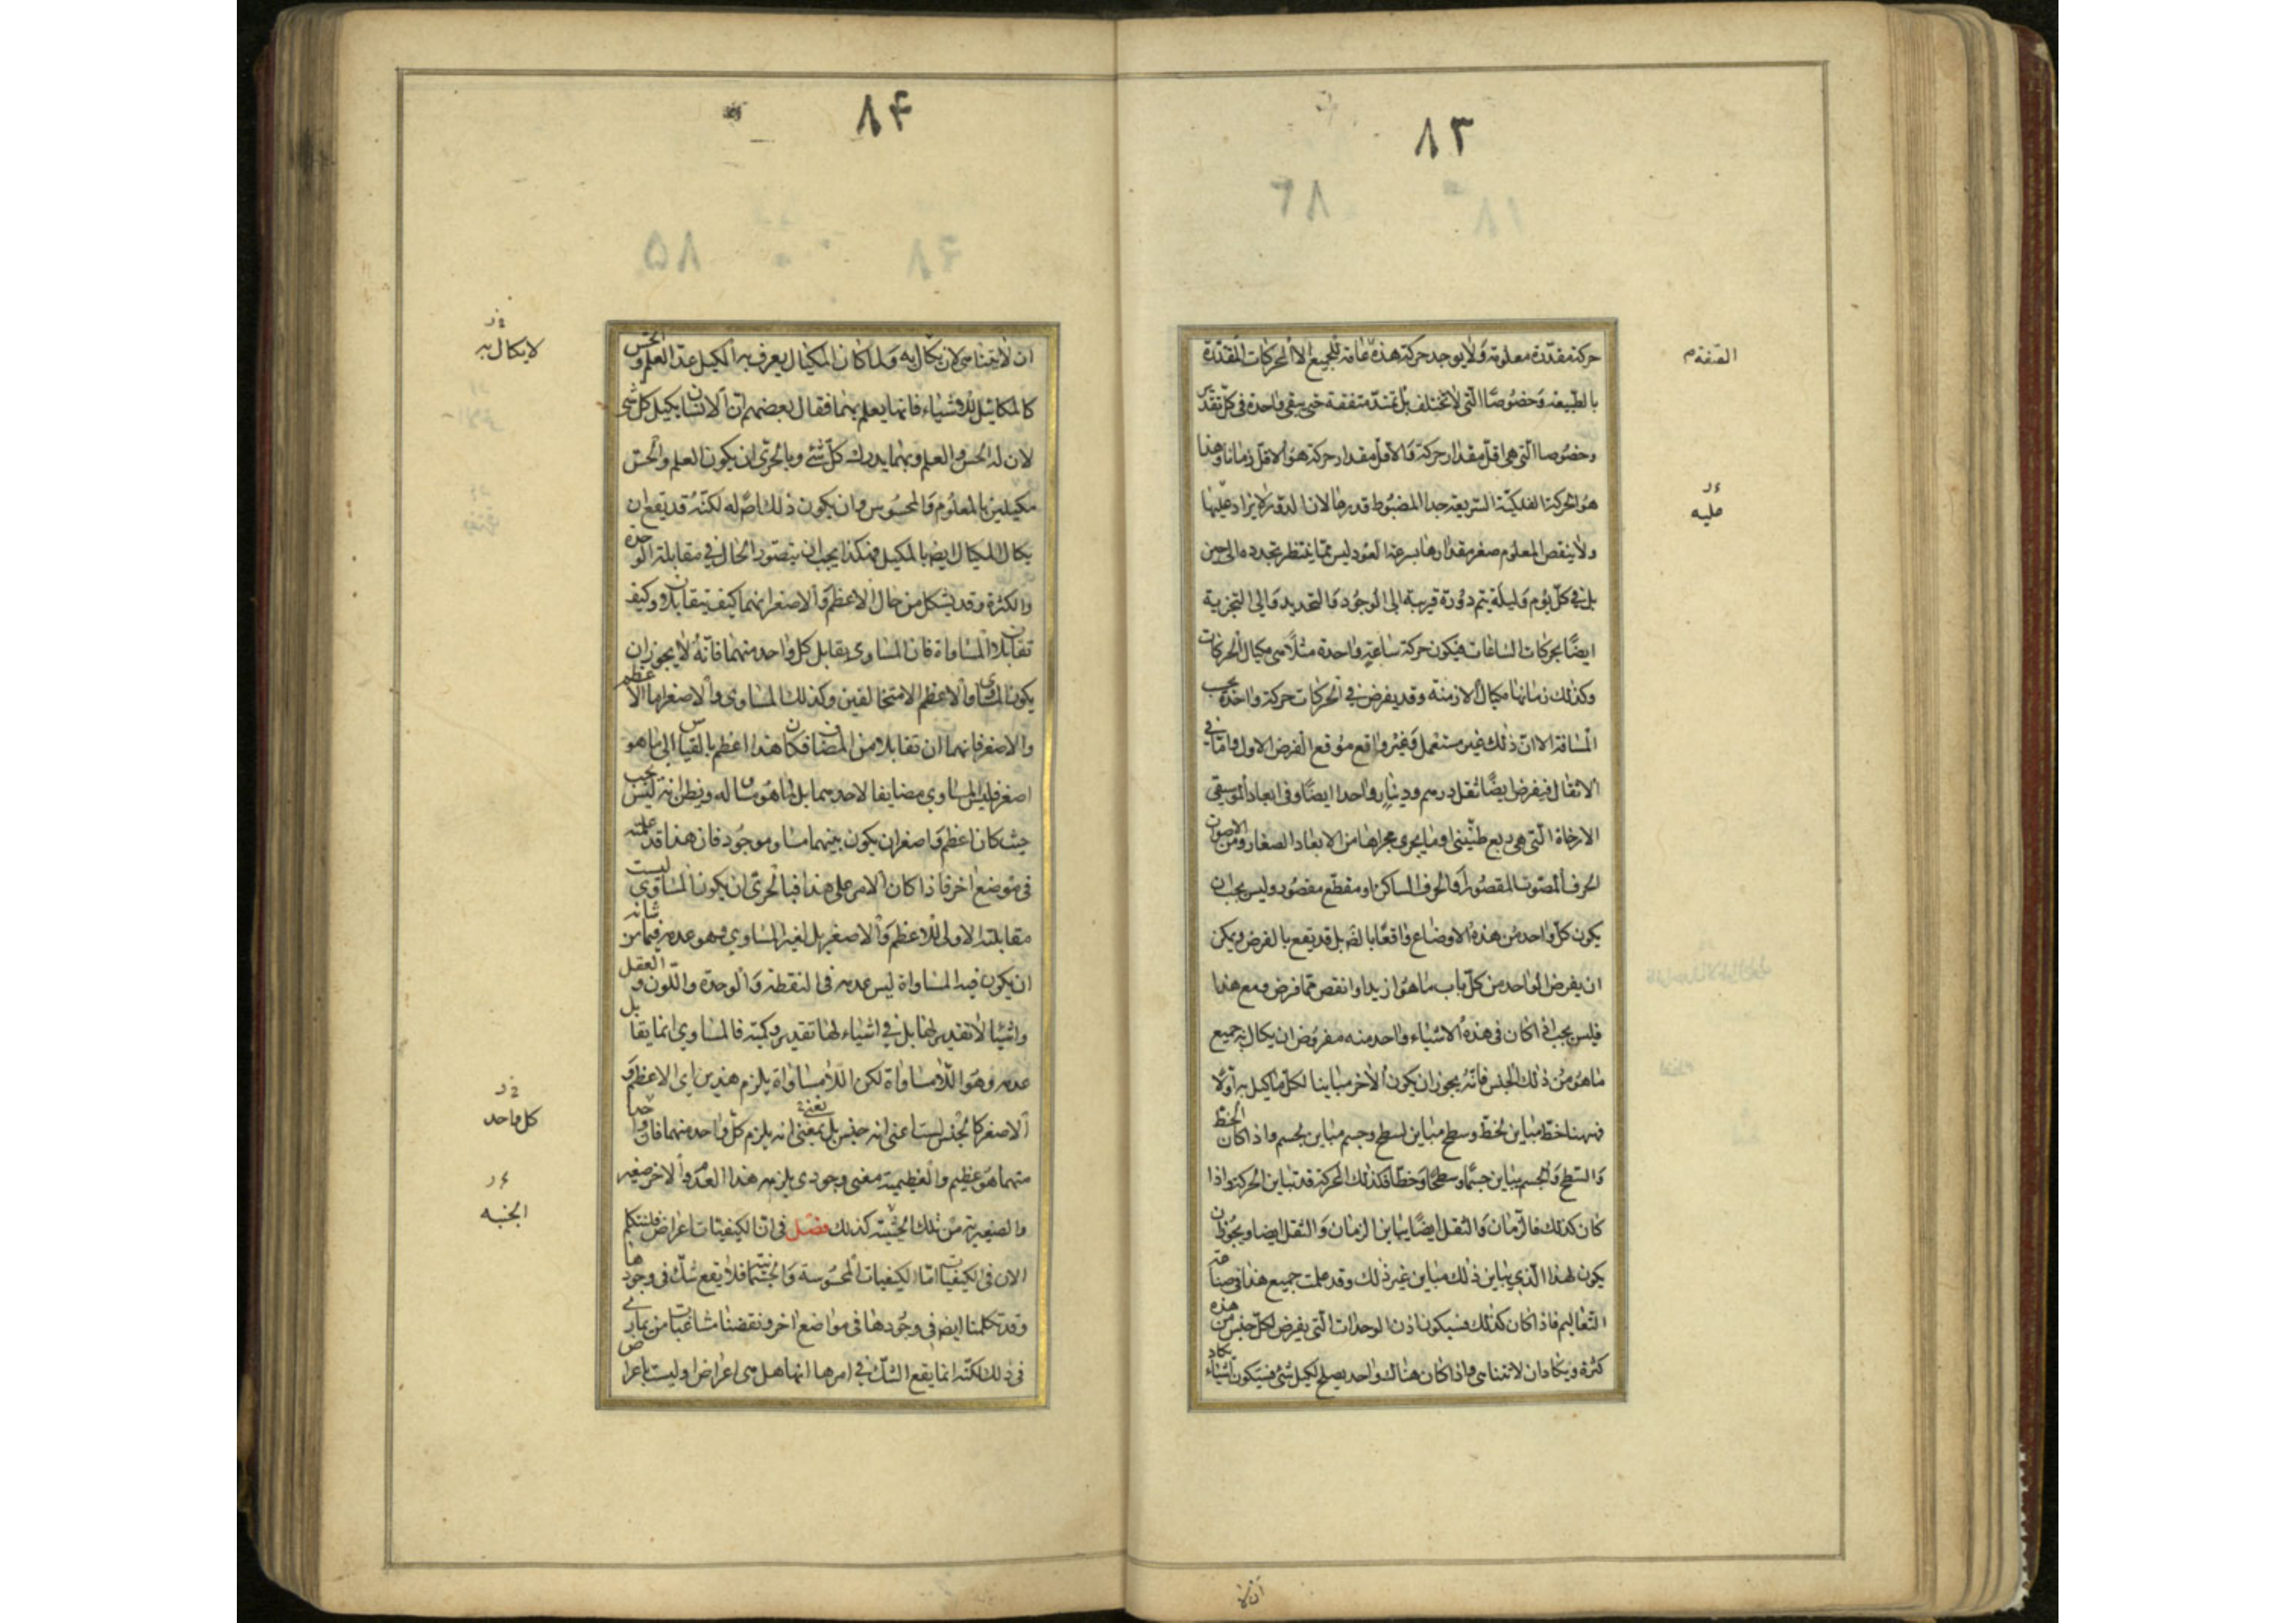 ٨٣
حركة مقدرة معلومة ولا يوجد حركة هذه عامة للجميع الا الحركات المقدرة
بالطبيعة وخصوصا التي لا تختلف بل تمتد متفقة حتى يبقى واحدة في كل تقدير
وخصوصا التي هي اقل مقدار حركة والاقل مقدار حركة هو الاقل زمانا وهذا
هو الحركة الفلكية السريعة جدا المضبوط قدرها لان الدورة لا يزاد عليها
ولا ينقص المعلوم صغر مقدارها بسرعة العود ليس مما ينتظر تجدده الى حين
بل في كل يوم وليلة يتم دورة قريبة الى الوجود والتحديد والى التجزية
ايضا بحركات الساعات فيكون حركة ساعة واحدة مثلا هي مكيال الحركات
وكذلك زمانها مكيال الازمنة وقد يفرض في الحركات حركة واحدة بحسب
المسافة الا ان ذلك غير مستعمل وغير واقع موقع الفرض الاول واما في
الاثقال فيفرض ايضا ثقل درهم ودينار واحدا ايضا وفي ابعاد الموسيقى
الارخاة التي هي ربع طنيني وما يجري مجراها من الابعاد الصغار ومن الاصوات
الحرف المصوت المقصور او الحرف الساكن او مقطع مقصور وليس يجب ان
يكون كل واحد من هذه الاوضاع واقعا بالضرورة بل قد يقع بالفرض ويمكن
ان يفرض الواحد من كل باب ما هو ازيد او انقص مما فرض ومع هذا
فليس يجب اذا كان في هذه الاشياء واحد منه مفروض ان يكال به جميع
ما هو من ذلك الجنس فانه يجوز ان يكون الاخر مباينا لكل ما كيل به اولا
فههنا خط مباين لخط وسطح مباين لسطح وجسم مباين لجسم واذا كان الخط
والسطح والجسم يباين جسما وسطحا وخطا فكذلك الحركة قد تباين الحركة واذا
كان كذلك فالزمان والثقل ايضا يباين الزمان والثقل ايضا ويجوز ان
يكون لهذا الذي يباين ذلك مباين غير ذلك وقد علمت جميع هذا في صناعة
التعاليم فاذا كان كذلك فسيكون اذن الوحدات التي يفرض لكل جنس من هذه
كثرة ويكاد ان لا تتناهى واذا كان هناك واحد يصلح لكيل شئ فسيكون اشياء يكاد
عليه
٨٤
ان لا يتناهى لان يكال به ولما كان المكيال يعرف به المكيل عد العلم والحس
كالمكائيل للاشياء فانها يعلم بهما فقال بعضهم ان الانسان يكيل كل شئ
لان له الحس والعلم وبهما يدرك كل شئ وبالحرى ان يكون العلم والحس
مكيلين بالمعلوم والمحسوس وان يكون ذلك اصلا له لكنه قد يقع ان
يكال المكيال ايضا بالمكيل فهكذا يجب ان يتصور الحال في مقابلة الوحدة
والكثرة وقد يشكل من حال الاعظم والاصغر انهما كيف يتقابلان وكيف
تقابلان المساواة فان المساوى يقابل كل واحد منهما فانه لا يجوز ان
يكون المساوى والاعظم الا متخالفين وكذلك المساوى والاصغر اما الاعظم
والاصغر فانهما ان تقابلا فمن المضاف فكان هذا اعظم بالقياس الى ما هو
اصغر فليس المساوى مضايفا لاحدهما بل لما هو مساو له ويظن انه ليس يجب
حيث كان اعظم واصغر ان يكون بينهما مساو موجود فان هذا قد علمته
في موضع اخر فاذا كان الامر على هذا فبالحرى ان يكون المساوى ليست
مقابلته الاولى للاعظم والاصغر بل لغير المساوى وهو عدمه فيما من شانه
ان يكون فيه المساواة ليس عدمه في النقطة والوحدة واللون والعقل
واشياء لا تقدير لها بل في اشياء لها تقدير وكمية فالمساوى انما يقابل
عدمه وهو اللامساواة لكن اللامساواة يلزم هذين اى الاعظم و
الاصغر كالجنس لست اعنى انه جنس بل بمعنى انه يلزم كل واحد منهما فان واحدا
منهما هو عظيم والعظيمية معنى وجودى يلزمه هذا العدم والاخر صغير
والصغيرية من تلك الحيثية كذلك فصل في ان الكيفيات اعراض فلنتكلم
الان في الكيفيات اما الكيفيات المحسوسة والجسمانية فلا يقع شك في وجودها
وقد تكلمنا ايضا في وجودها في مواضع اخر ونقضنا مشاغبات من يمارى
في ذلك لكنه انما يقع الشك في امرها انها هل هي اعراض او ليست باعراض
لا يكال به
كل واحد
الجنبه